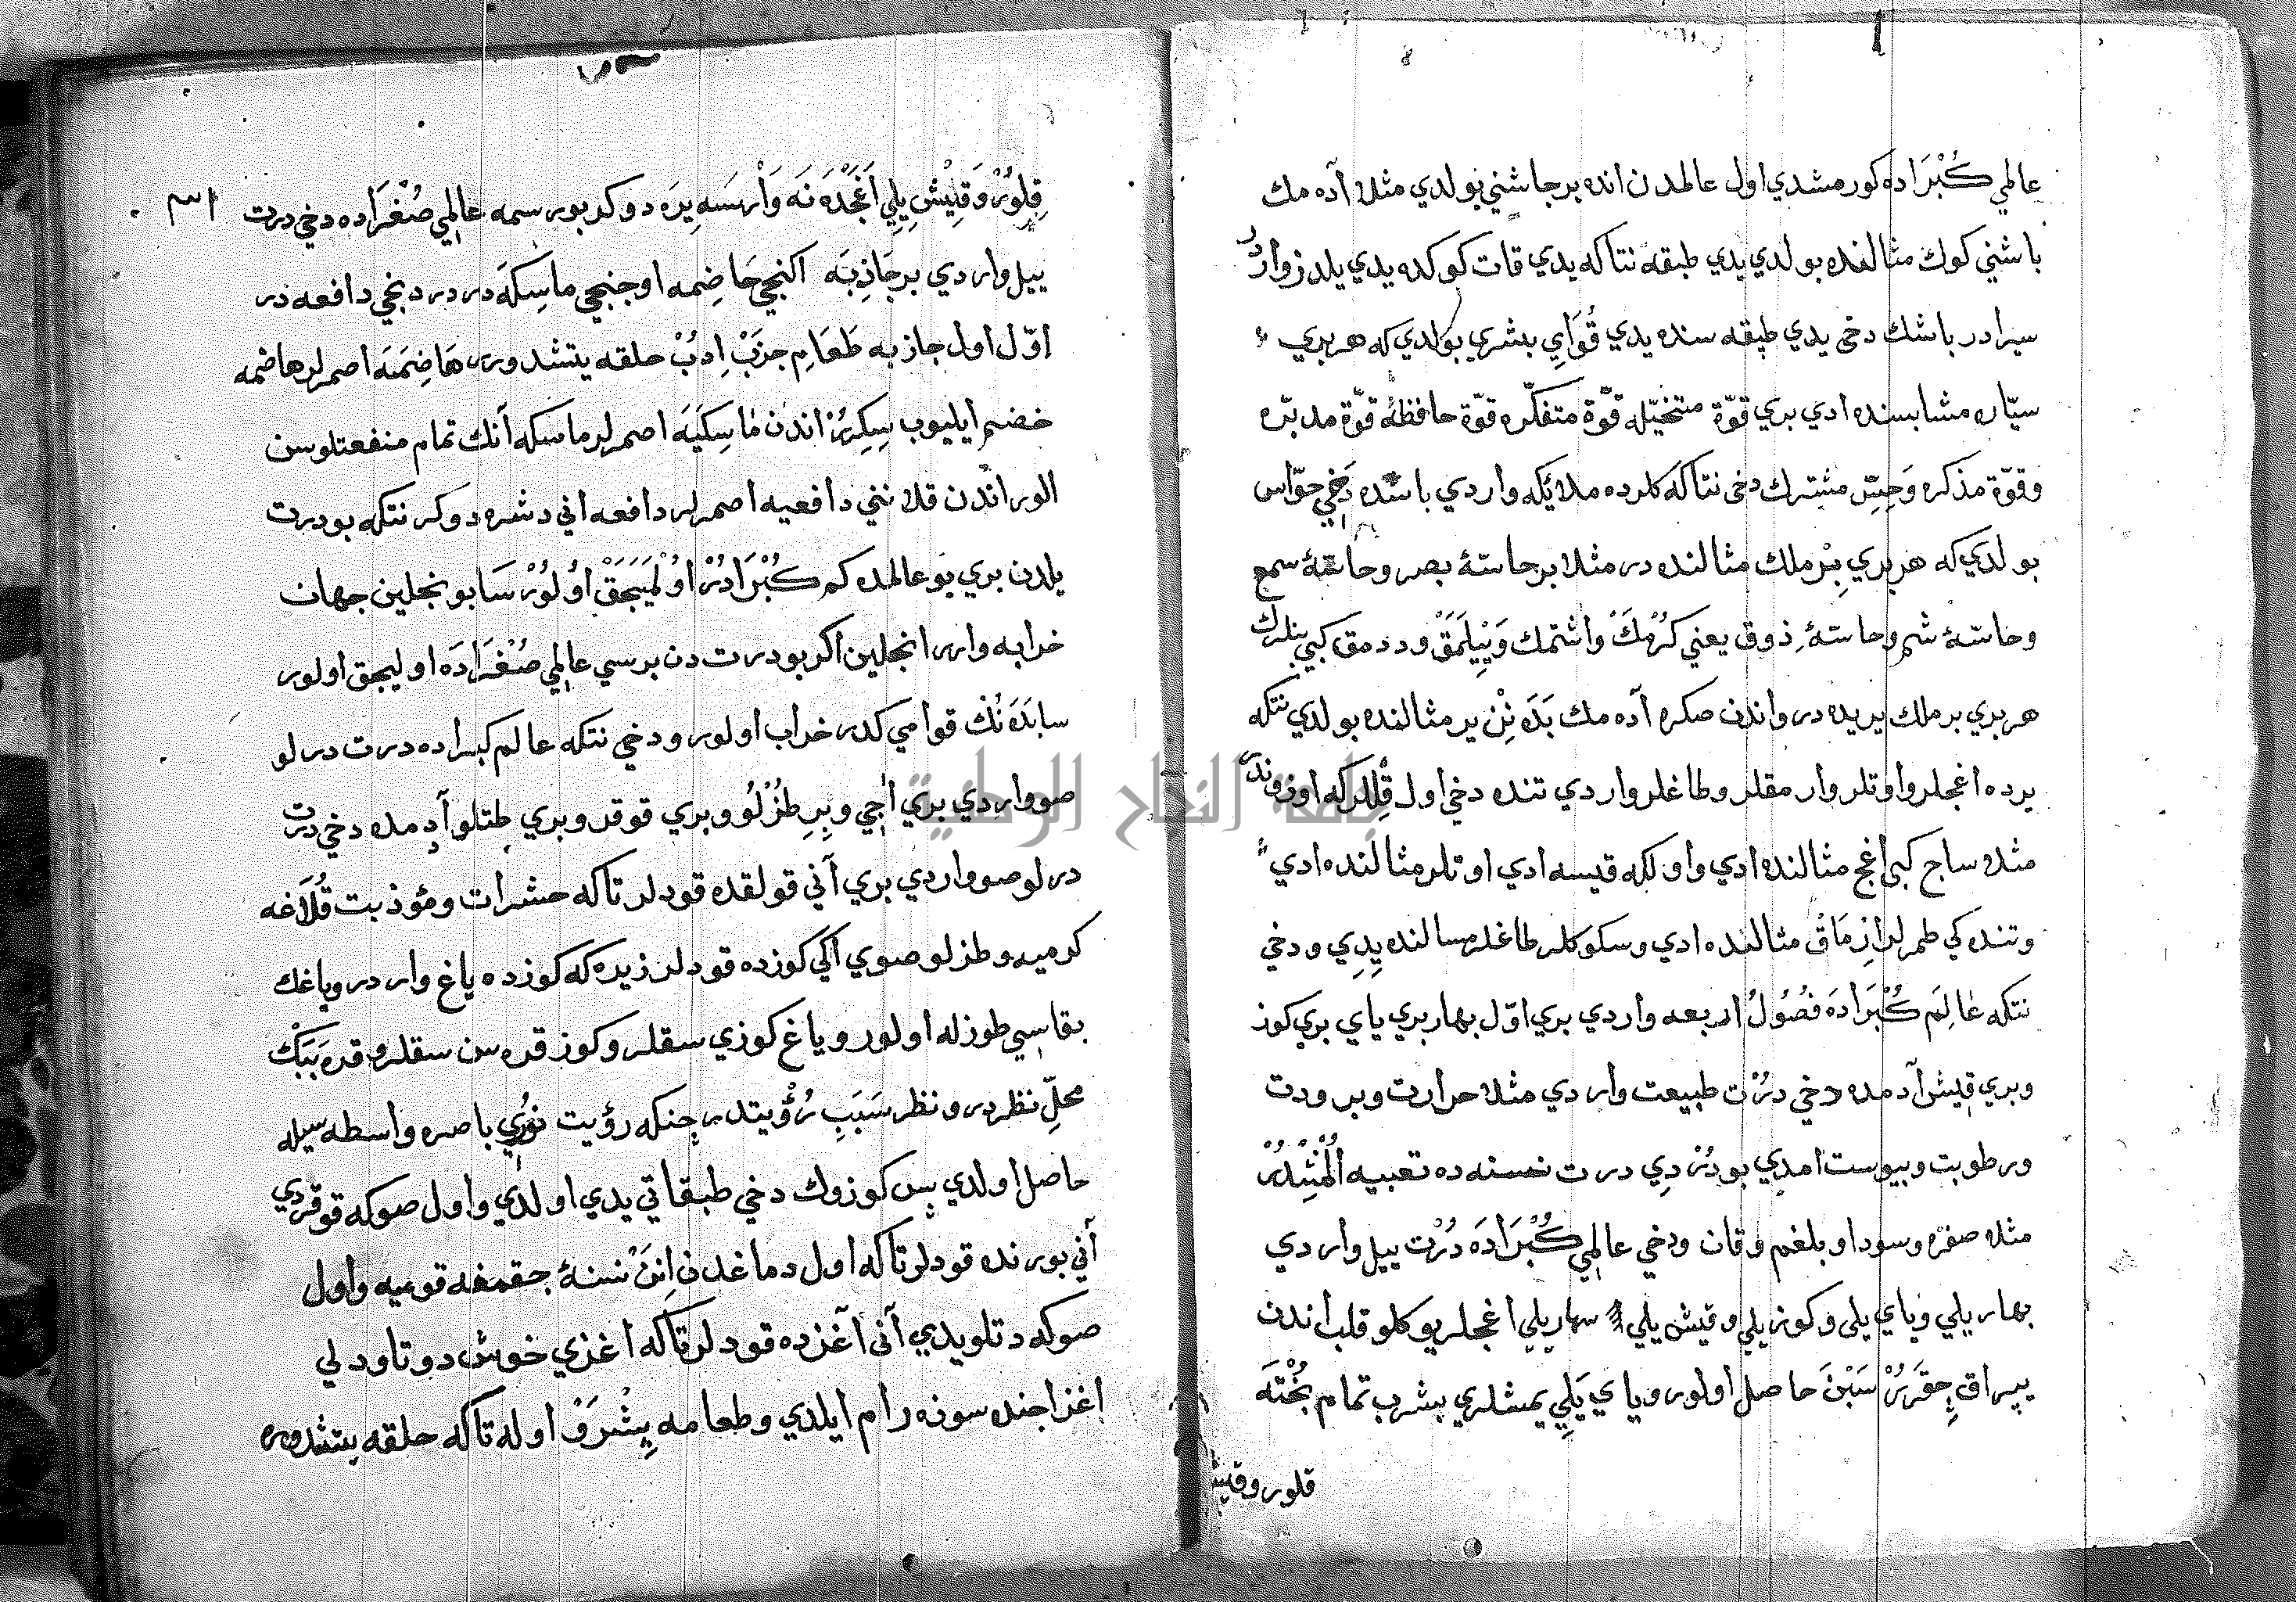 عالمي كُبْرَاده كورمشدي اول عالمدن انده برجاشني بولدي مثلا آده مك
باشني كوك مثالنده بولدي يدي طبقه نتاكه يدي قات كوكده يدي يلدز واردر
سيرادر باشك دخى يدي طبقه سنده يدي قُوَايِ بشري بولدي كه هربري
سيّاره مشابسنده ادي بري قوّة متخيّله قوّة متفكّره قوّة حافظهٔ قوّة مدبّره
وقوّة مذكره وَحِسِّ مشترك دخى نتاكه كلرده ملائكه واردي باشده دَخِي حوّاس
بولدي كه هربري بِرْ ملك مثالنده در مثلا بر حاسّهٔ بصر وحاسّهٔ سمع
وحاسّهٔ شم وحاسّهٔ ذوق يعني كرُمْكَ واشتمك وَيَيِلَمَقْ وددمق كبي بنلرك
هربري برملك يريده در واندن صكره آده مك بَدَه نِنْ ير مثالنده بولدي نتكه
يرده اغجلر واوتلر وارمقلر وطاغلر واردي تنده دخي اول قِلْلر كه اوزوندر
مثده ساج كبي اغج مثالنده ادي واولكه قيسه ادي اوتلر مثالنده ادي
وتنده كي طمرلر ازِمَاقْ مثالنده ادي وسكوكلر طاغلر مسالنده يِدِي ودخي
نتكه عَالِمَ كُبْرَادَه فُصُولُ اربعه واردي بري اوّل بهار بري ياي بري كوز
وبري قيش آدمده دخي درُت طبيعت واردي مثلا حرارت وبرودت
ورطوبت ويبوست امدي بودُرْدِي درت نسنه ده تعبيه اُلُنْمْشِدُرْ
مثله صفره وسودا وبلغم وقان ودخي عالِمِي كُبْرَادَه دُرْت ييل واردي
بهار يلي وياي يلي وكوز يلي وقيش يلي بهار يلي اغجلر يوكلو قلب اندن
يپراق چِقَرَرْ سَبْنَ حاصل اولور وياي يَلِي يمشلري پشرب تمام پُخْتَه
قلور وقيش
قِلوُرْ وَقِيْشِ يِلِي اَغَجْدَه نَه وَاْرسَه يِرَه دوكر بورسمه عالِمِي صُغْرَاده دخي درت
ييل واردي بر جَاذِبَه اكنجي حَاضِمه اوجنجي ماسِكَه در دردنجي دافعه در
اوّل اول جازبه طَعَامِ جزَبْ اِدُبْ حلقه يتشدورر هَاضِمَيَه اصمرلر هاضمه
خضم ايليوب سِكِرِرْ اندن مَاسِكَيَه اصمرلر ماسكه آنك تمام منفعتلوسن
الور اندن قلا نني دافعيه اصمرلر دافعه اني دشره دوكر نتكه بودرت
يلدن بري بو عالمده كم كُبْرَادُرْ اوُلْمَيَجَقْ اوُلُورْسَا بونجلين جهان
خرابه وارر انجلين اكر بو درت دن برسي عالِمِي صُغْرَادَه اوليجق اولور
سا بَدَه نُكْ قوامي كدر خراب اولور ودخي نتكه عالم كبراده درت درلو
صو واردي بري اجي وبِرِ طُزْلُو وبري قوقر وبري طتلو آدمده دخي درت
درلو صو واردي بري آني قولقده قودلر تاكه حشرات ومؤذيت قُلَاغه
كرميه وطزلو صوي اكي كوزده قودلر زيره كه كوزده ياغ وار در وياغك
بقاسي طوزله اولور وياغ كوزي سقلر وكوز قره سن سقلر وقره بَبَكْ
محلّ نظردر ونظر سَبَبِ رُؤْيتدر چنكه رؤيت نوُرِي باصره واسطه سيله
حاصل اولدي پس كوزوك دخي طبقاتي يدي اولدي واول صوكه قوقردي
آني بورنده قودلر تاكه اول دماغدن اِنَنْ نسنهٔ جقمغه قوميه واول
صوكه دتلويدي آنى اغزده قودلر تاكه اغزي خوش دوتا ودلي
اغز اجنده سوزه رام ايلدي وطعامه پِشْرَوْ اوله تاكه حلقه يتشدوره